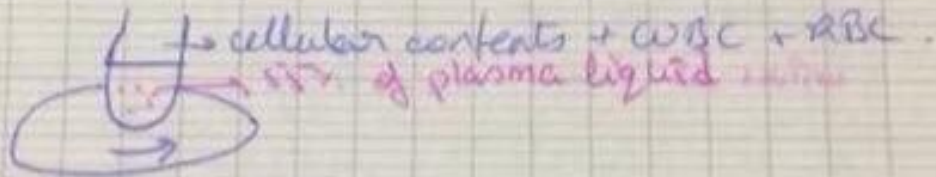 cellular contents + WBC + RBC.
55% of plasma liquid